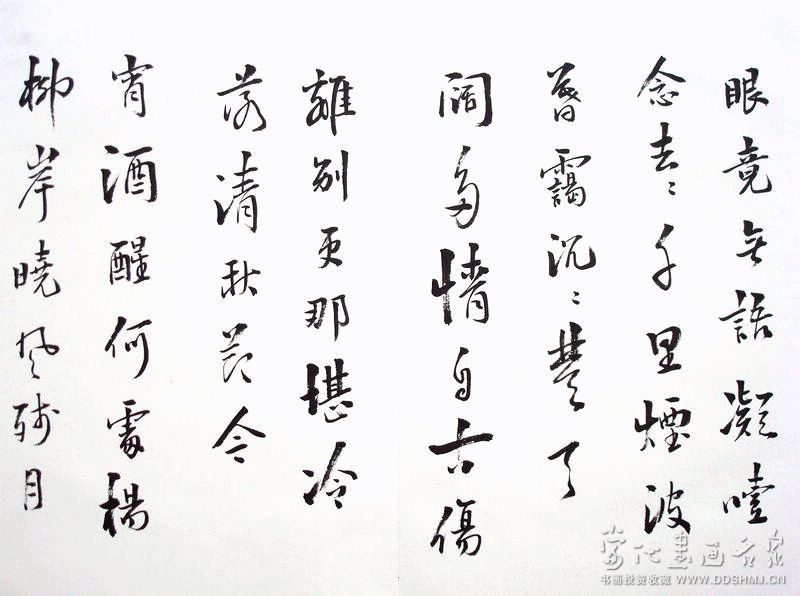 眼竟無語凝噎
念去々千里煙波
暮靄沉々楚天
闊多情自古傷
離別更那堪冷
落清秋節今
宵酒醒何處楊
柳岸曉風殘月
当代書画名家
书画投资收藏 WWW.DDSHMJ.CN